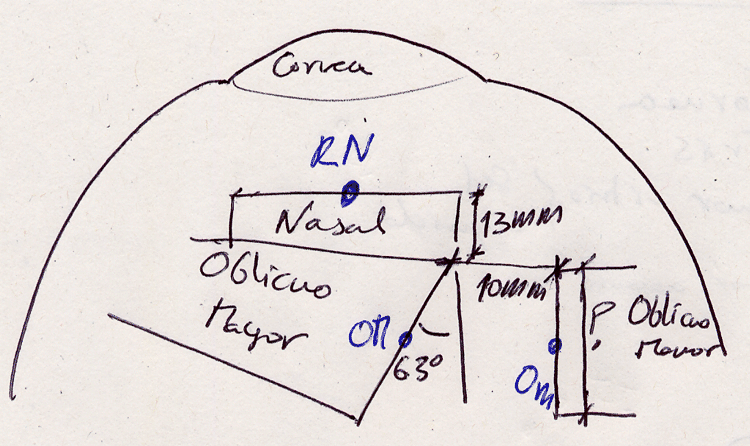 Cornea
RN
Nasal
13mm
Oblicuo
Mayor
OM
63º
10mm
Om
?
Oblicuo
Menor